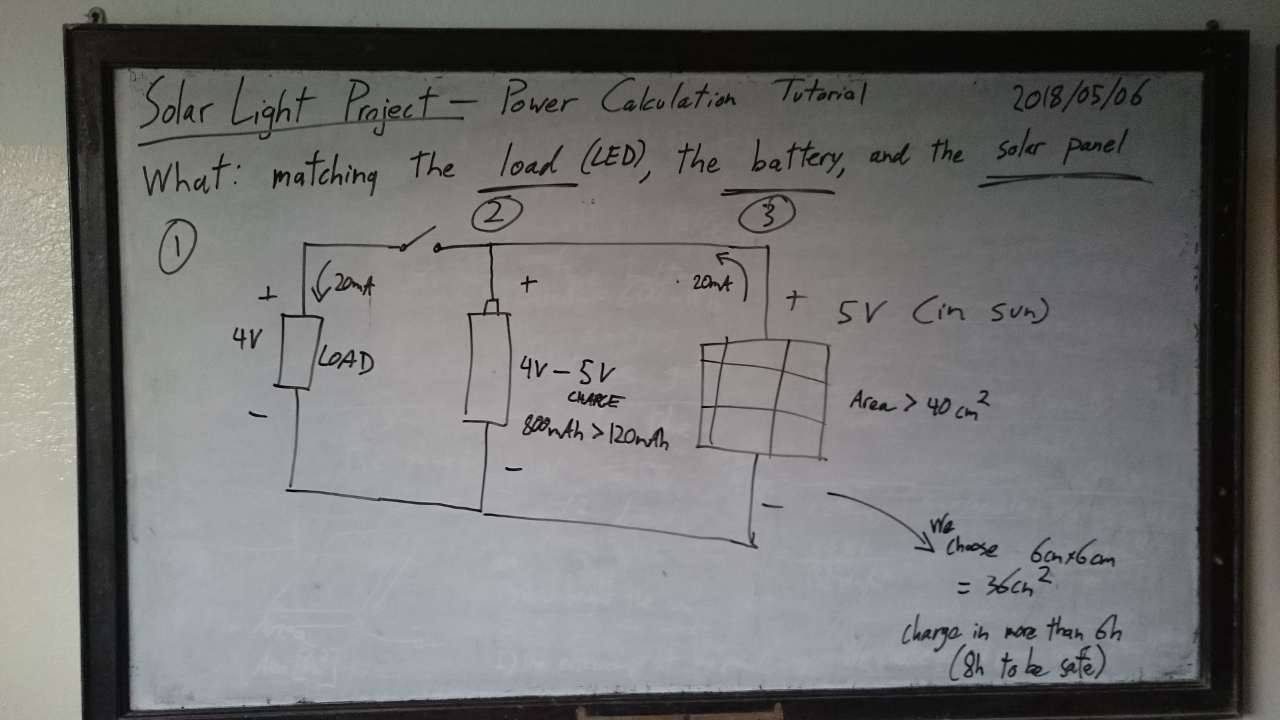 Solar Light Project — Power Calculation Tutorial 2018/05/06
What: matching the load (LED), the battery, and the solar panel
① ② ③
+ 20mA + 20mA + 5V (in sun)
4V LOAD
4V – 5V
CHARGE
800mAh > 120mAh
Area > 40cm²
–
–
–
We
choose 6cm×6cm
= 36cm²
charge in more than 6h
(8h to be safe)